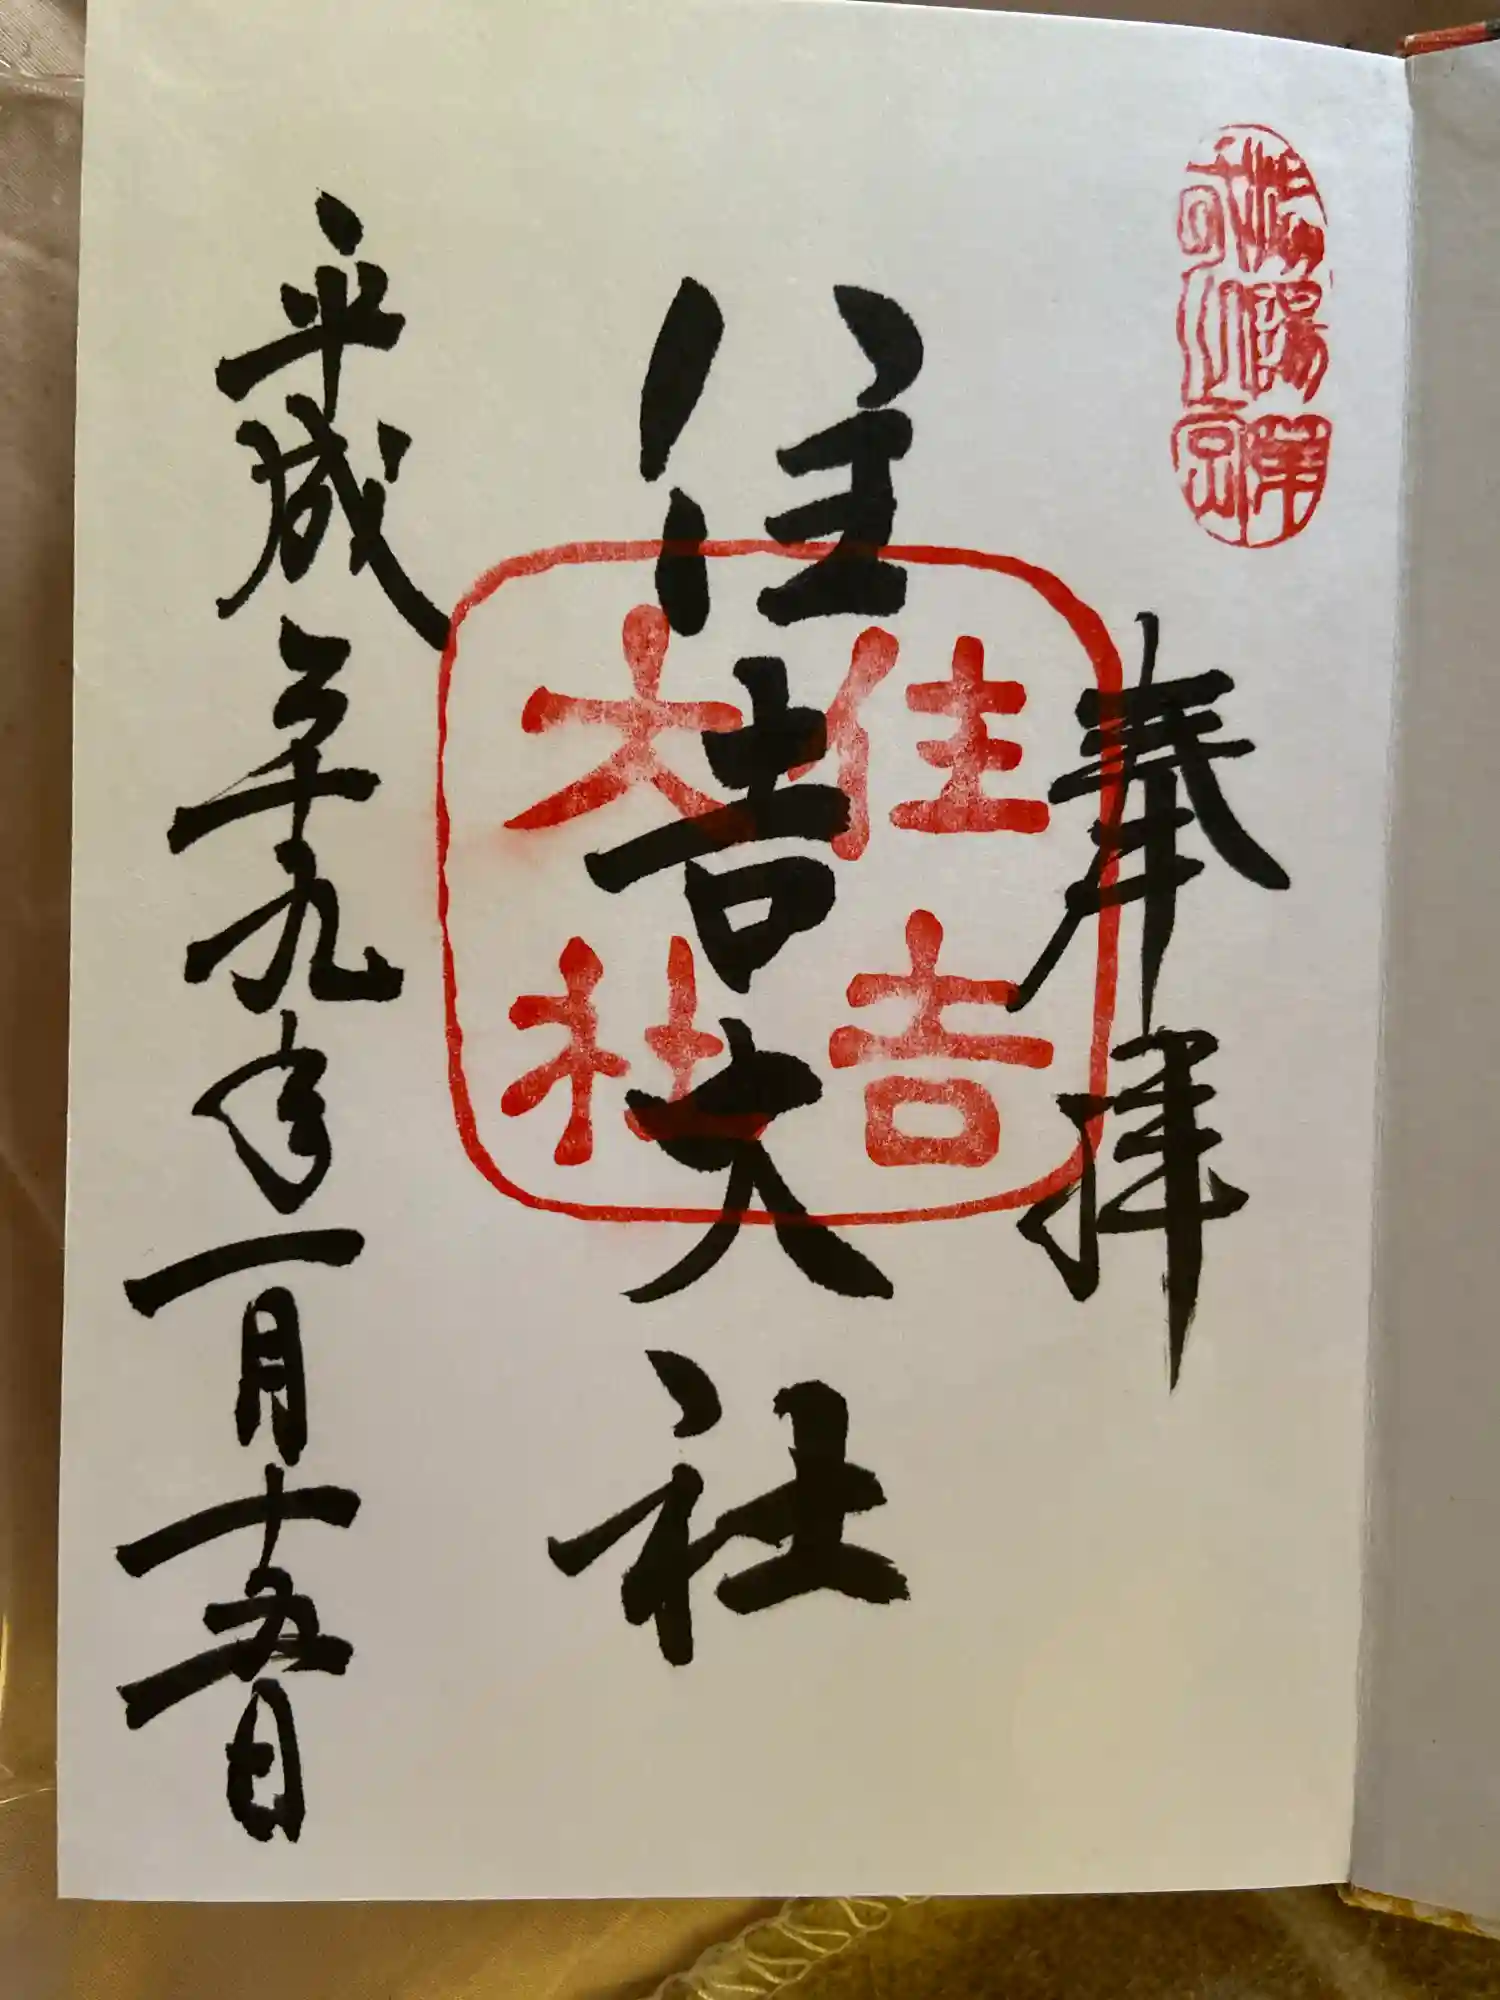 奉拝
住吉大社
平成二十九年一月十五日
住吉
大社